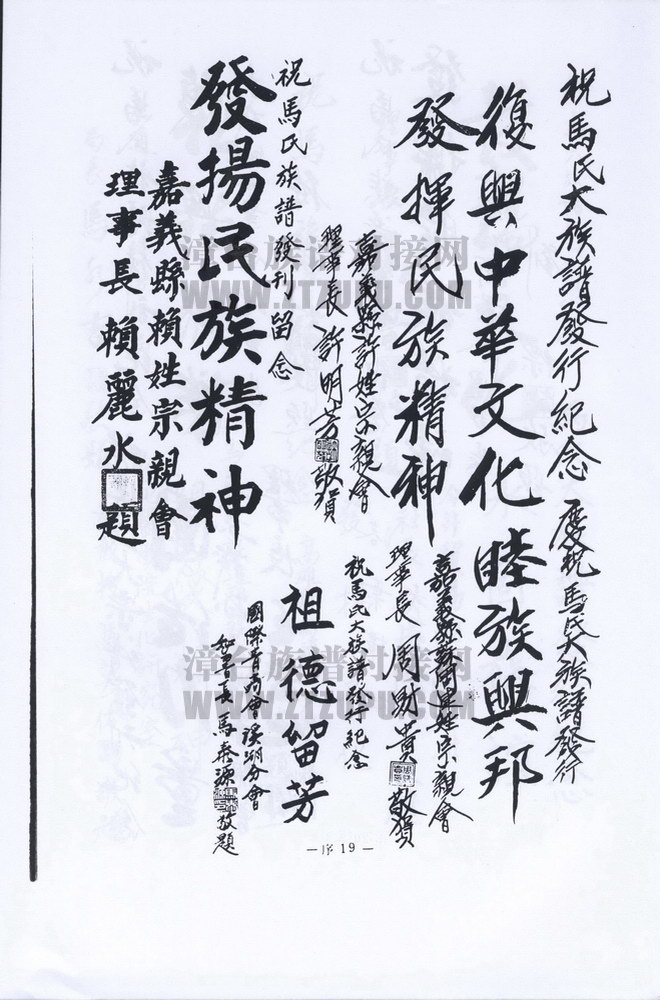 祝馬氏大族譜發行紀念
復興中華文化
發揮民族精神
嘉義縣許姓宗親會
理事長 許明芳 敬賀
祝馬氏族譜發刊留念
發揚民族精神
嘉義縣賴姓宗親會
理事長 賴麗水 題
慶祝馬氏大族譜發行
睦族興邦
嘉義縣蘇周連姓宗親會
理事長 周財貴 敬賀
祝馬氏大族譜發行紀念
祖德留芳
國際青商會溪湖分會
馬泰源 敬題
—序 19—
漳台族谱对接网
WWW.ZTZUPU.COM
漳台族谱对接网
WWW.ZTZUPU.COM